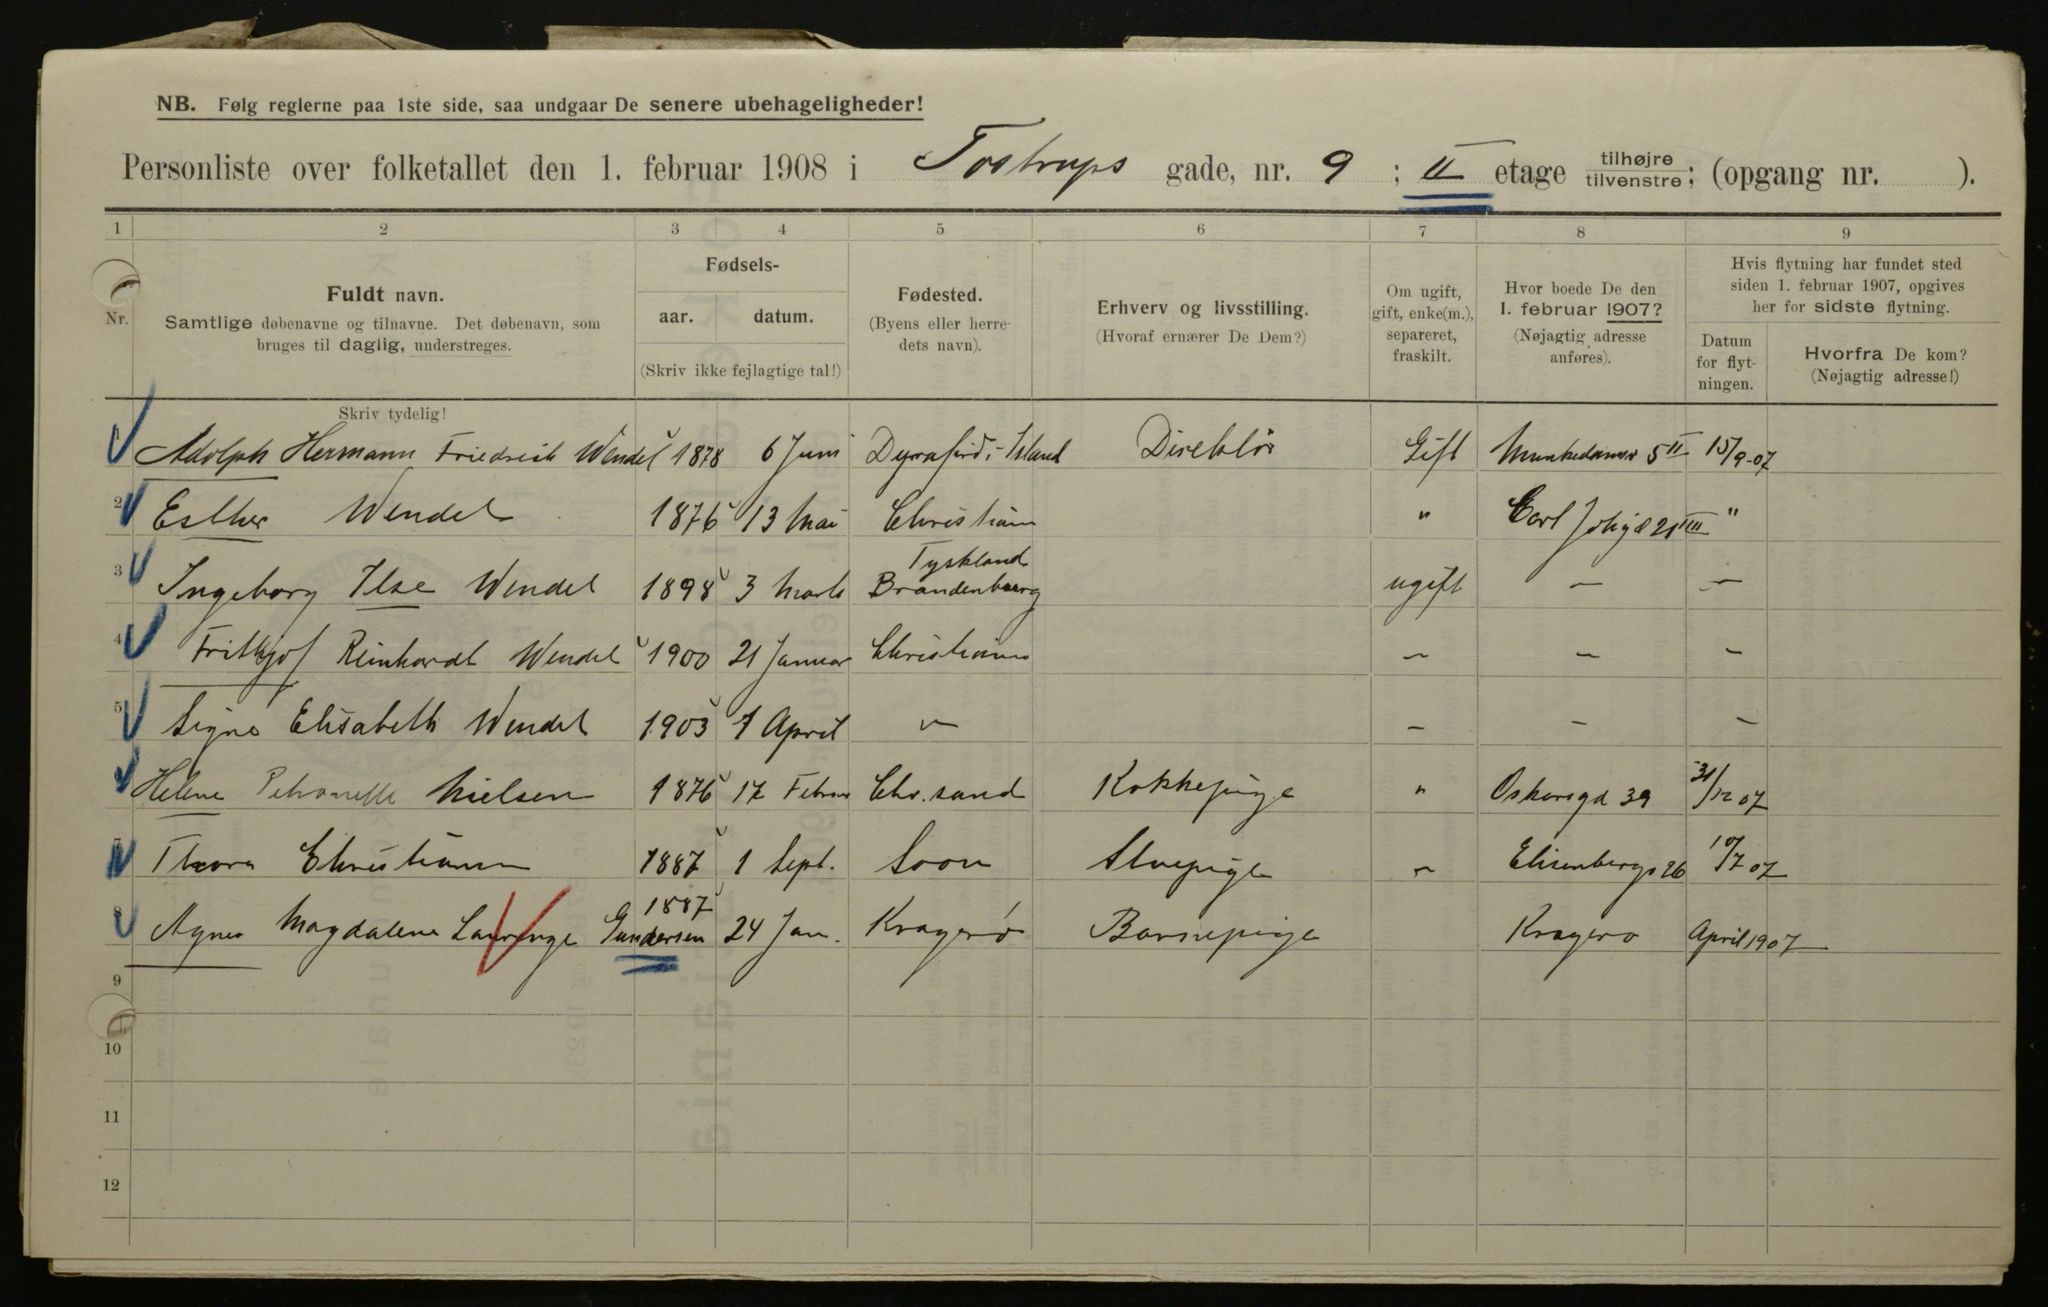 NB. Følg reglerne paa 1ste side, saa undgaar De senere ubehageligheder!
Personliste over folketallet den 1. februar 1908 i Tostrups gade, nr. 9 ; II etage tilhøjre tilvenstre; (opgang nr. ).
1 2 3 4 5 6 7 8 9
Nr.
Fuldt navn.
Samtlige døbenavne og tilnavne. Det døbenavn, som
bruges til daglig, understreges.
Skriv tydelig!
Fødsels-
aar. datum.
(Skriv ikke fejlagtige tal!)
Fødested.
(Byens eller herre-
dets navn).
Erhverv og livsstilling.
(Hvoraf ernærer De Dem?)
Om ugift,
gift, enke(m.),
separeret,
fraskilt.
Hvor boede De den
1. februar 1907?
(Nøjagtig adresse
anføres).
Hvis flytning har fundet sted
siden 1. februar 1907, opgives
her for sidste flytning.
Datum
for flyt-
ningen.
Hvorfra De kom?
(Nøjagtig adresse!)
1 Adolph Hermann Friedrich Wendel 1878 6 Juni Dyrafjird - Island Direktör Gift Munkedamsv 5 II 15/9-07
2 Esther Wendel 1876 13 Mai Christiania " Carl Johgd 21 III "
3 Ingeborg Ilse Wendel 1898 3 Marts Tyskland
Brandenburg ugift – –
4 Frithjof Reinhardt Wendel 1900 21 Januar Christiania – – –
5 Signe Elisabeth Wendel 1903 1 April – – – –
Helene Petronelle Nielsen 1876 17 Februar Chr.sand Kokkepige " Oskarsgd 39 31/12 07
7 Thora Christiansen 1887 1 Sept. Soon Stuepige – Elisenbergv 26 10/7 07
8 Agnes Magdalene Laurenze Gundersen 1887 24 Jan. Kragerø Barnepige Kragerø April 1907
9
10
11
12